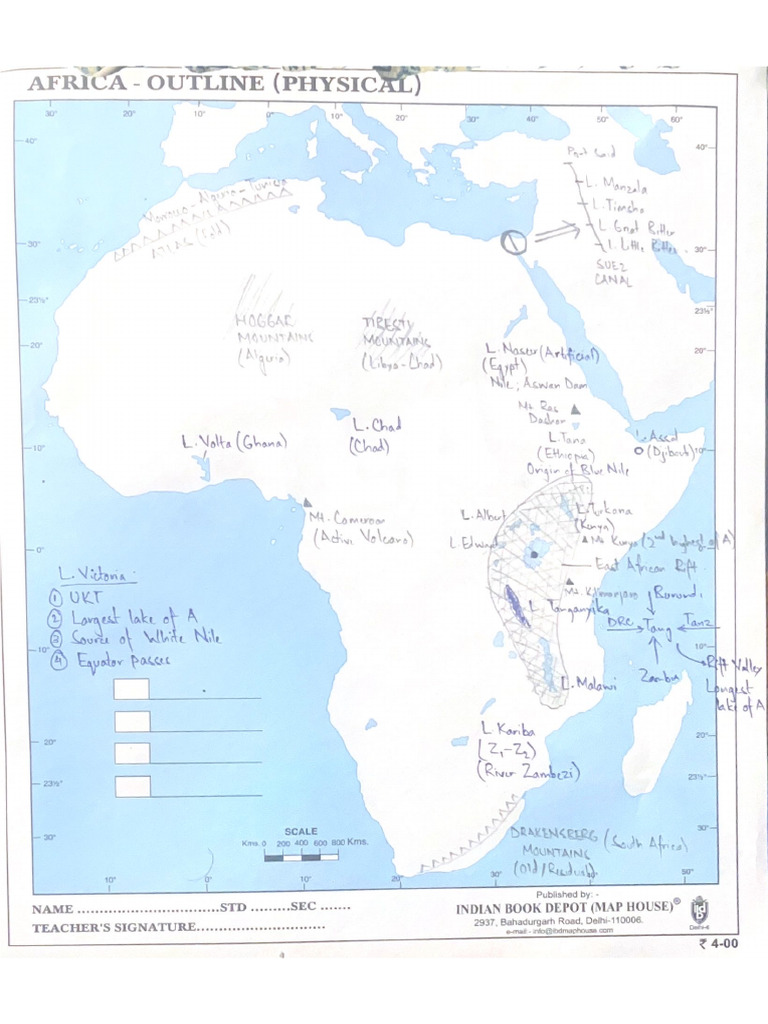 AFRICA - OUTLINE (PHYSICAL)
30° 20° 10° 0° 10° 20° 30° 40° 50° 60°
40° 40°
Port Said
L. Manzala
L. Timsha
L. Great Bitter
L. Little Bitter
SUEZ
CANAL
Morocco-Algeria-Tunisia
ATLAS (Fold)
30° 30°
23½° 23½°
HOGGAR
MOUNTAINS
(Algeria)
TIBESTI
MOUNTAINS
(Libya-Chad)
L. Nasser (Artificial)
(Egypt)
Nile; Aswan Dam
20° 20°
Mt. Ras
Dashen
L. Tana
(Ethiopia)
Origin of Blue Nile
L. Assal
(Djibouti)
L. Chad
(Chad)
L. Volta (Ghana)
10° 10°
Mt. Cameroon
(Active Volcano)
L. Albert
L. Edward
L. Turkana
(Kenya)
Mt. Kenya (2nd highest of A)
East African Rift
Mt. Kilimanjaro
0°
L. Victoria:
① UKT
② Largest lake of A
③ Source of White Nile
④ Equator passes
L. Tanganyika
Burundi
DRC Tang Tanz
Zambia
Rift Valley
Longest
lake of A
10° 10°
L. Malawi
L. Kariba
(Z₁-Z₂)
(River Zambezi)
20° 20°
23½° 23½°
DRAKENSBERG (South Africa)
MOUNTAINS
(Old/Residual)
30° 30°
SCALE
Kms. 0 200 400 600 800 Kms.
10° 0° 10° 20° 30° 50°
NAME ................................STD .........SEC .......
TEACHER'S SIGNATURE..............................
Published by: -
INDIAN BOOK DEPOT (MAP HOUSE)®
2937, Bahadurgarh Road, Delhi-110006.
e-mail:- info@ibdmaphouse.com
ibd
Delhi-6
₹ 4-00